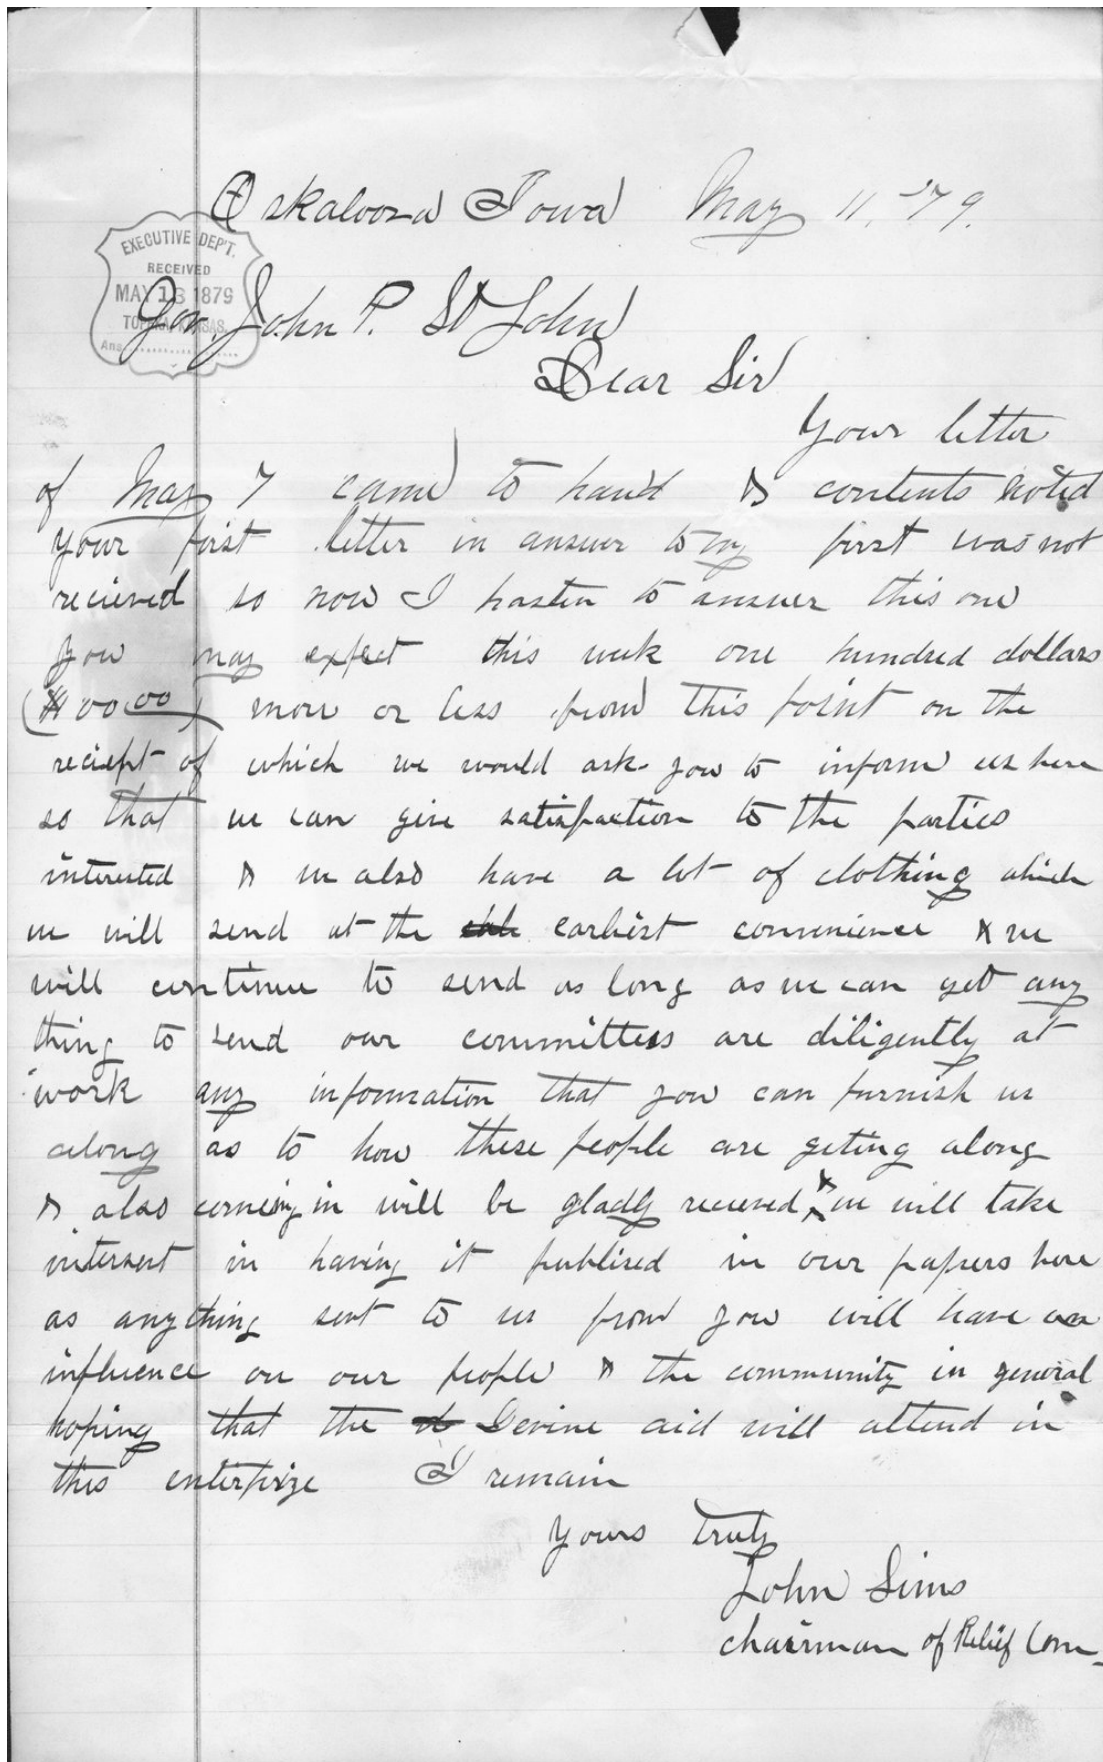 Oskaloosa Iowa May 11, '79.
EXECUTIVE DEP'T.
RECEIVED
MAY 13 1879
TOPEKA, KANSAS.
Ans.....................
Gov. John P. St John
Dear Sir
Your letter
of May 7 came to hand & contents noted
your first letter in answer to my first was not
recieved so now I hasten to answer this one
you may expect this week one hundred dollars
($100 00) more or less from this point on the
reciept of which we would ask you to inform us here
so that we can give satisfaction to the parties
interested & we also have a lot of clothing which
we will send at the earliest convenience & we
will continue to send as long as we can get any
thing to send our committees are diligently at
work any information that you can furnish us
along as to how these people are geting along
& also coming in will be gladly recieved, & we will take
interest in having it publised in our papers here
as anything sent to us from you will have an
influence on our people & the community in general
hoping that the Devine aid will attend in
this enterprize I remain
Yours truly
John Sims
chairman of Relief Com-